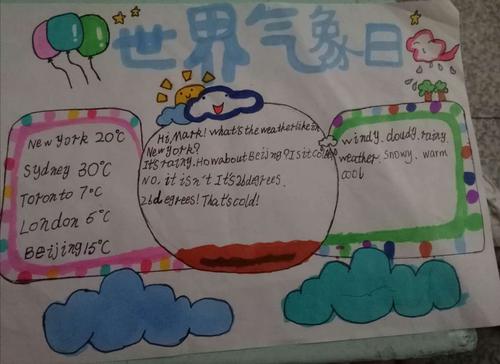 世界气象日
New York 20℃
Sydney 30℃
Toronto 7℃
London 6℃
Beijing 15℃
Hi, Mark! what's the weather like in
New York?
It's rainy. How about Beijing? Is it cold?
No, it isn't It's 26 degrees.
26 degrees! That's cold!
windy. cloudy. rainy.
weather. snowy. warm
cool